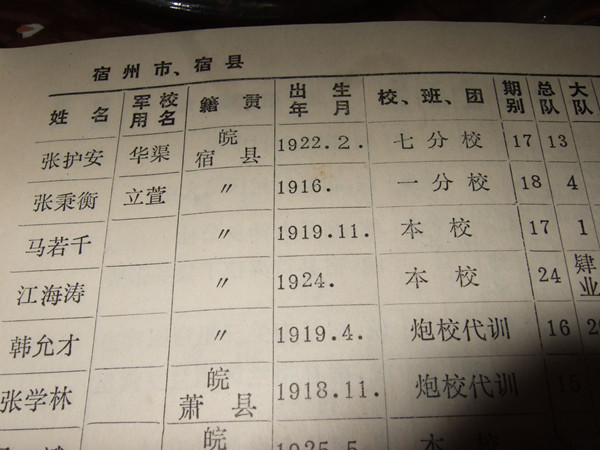 宿州市、宿县
姓名 军校用名 籍贯 出生年月 校、班、团 期别 总队 大队
张护安 华渠 皖宿县 1922.2. 七分校 17 13
张秉衡 立萱 〃 1916. 一分校 18 4
马若千 〃 1919.11. 本校 17 1
江海涛 〃 1924. 本校 24 肄业
韩允才 〃 1919.4. 炮校代训 16
张学林 皖萧县 1918.11. 炮校代训 15
皖 1925.5. 本校